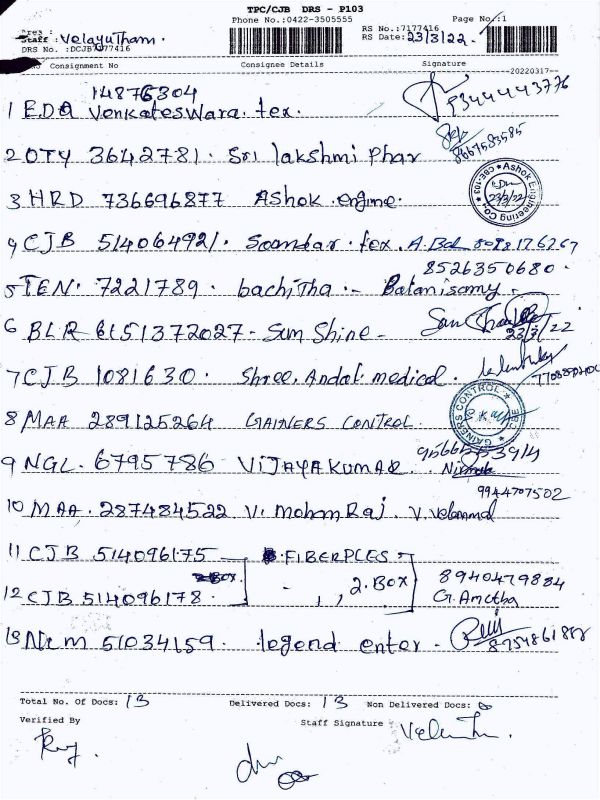 TPC/CJB DRS - P103
Phone No.:0422-3505555 Page No.:1
Area : RS No.:7177416
Staff : Velayutham. RS Date: 23/3/22
DRS No. :DCJB7177416
No Consignment No Consignee Details Signature
20220317
14876304 9344443776
1 EDA Venkateswara. tex.
8667583585
2 OTY 3642781. Sri lakshmi phar
3 HRD 736696877 Ashok engine.
Ashok Engineering Co. CBE-103 23/3/22
4 CJB 514064921. Soundar. tex. A. Bal 8098176267
8526350680.
5 TEN. 7221789. bachitha. - Balanisamy -
6 BLR 6151372027 - Sun Shine - 23/3/22
7 CJB 1081630. Shree. Andal. medical.
GAINERS CONTROL CBE
8 MAA 289125264 GAINERS CONTROL.
9 NGL. 6795786 VIJAYAKUMAR.
9944707502
10 MAA. 287484522 V. Mohan Raj. V. Velammal
11 CJB 514096175 FIBERPLES
2. Box 8940479884
12 CJB 514096178. G. Amutha
13 51034159. legend enter. 8754861888
Total No. Of Docs: 13 Delivered Docs: 13 Non Delivered Docs: 0
Verified By Staff Signature